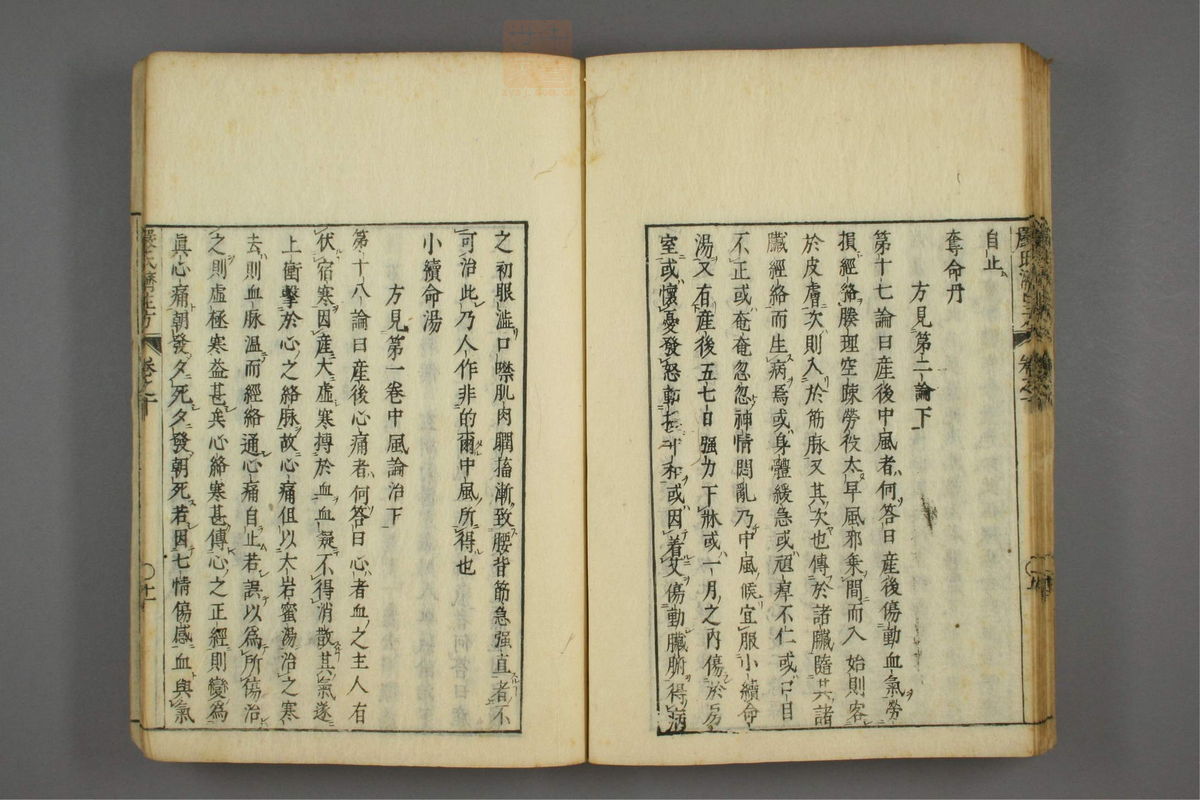 自止
奪命丹
方見第二論下
第十七論曰産後中風者何答曰産後傷動血氣勞
損經絡腠理空踈勞役太早風邪乗間而入始則客
於皮膚次則入於筋脉又其次也傳於諸臓隨其諸
臓經絡而生病焉或身體緩急或頑痺不仁或口目
不正或奄奄忽忽神情悶亂乃中風候宜服小續命
湯又有産後五七日强力下牀或一月之内傷於房
室或懷憂發怒動 冲和或因着艾傷動臓腑得病
之初眼澁口噤肌肉瞤搐漸致腰背筋急强直者不
可治此乃人作非的爾中風所得也
小續命湯
方見第一卷中風論治下
第十八論曰産後心痛者何答曰心者血之主人有
伏宿寒因産大虚寒搏於血血凝不得消散其氣遂
上衝擊於心之絡脉故心痛但以大岩蜜湯治之寒
去則血脉温而經絡通心痛自止若誤以爲所傷治
之則虚極寒益甚矣心絡寒甚傳心之正經則變爲
眞心痛朝發夕死夕發朝死若因七情傷感血與氣
嚴氏濟生方 卷之